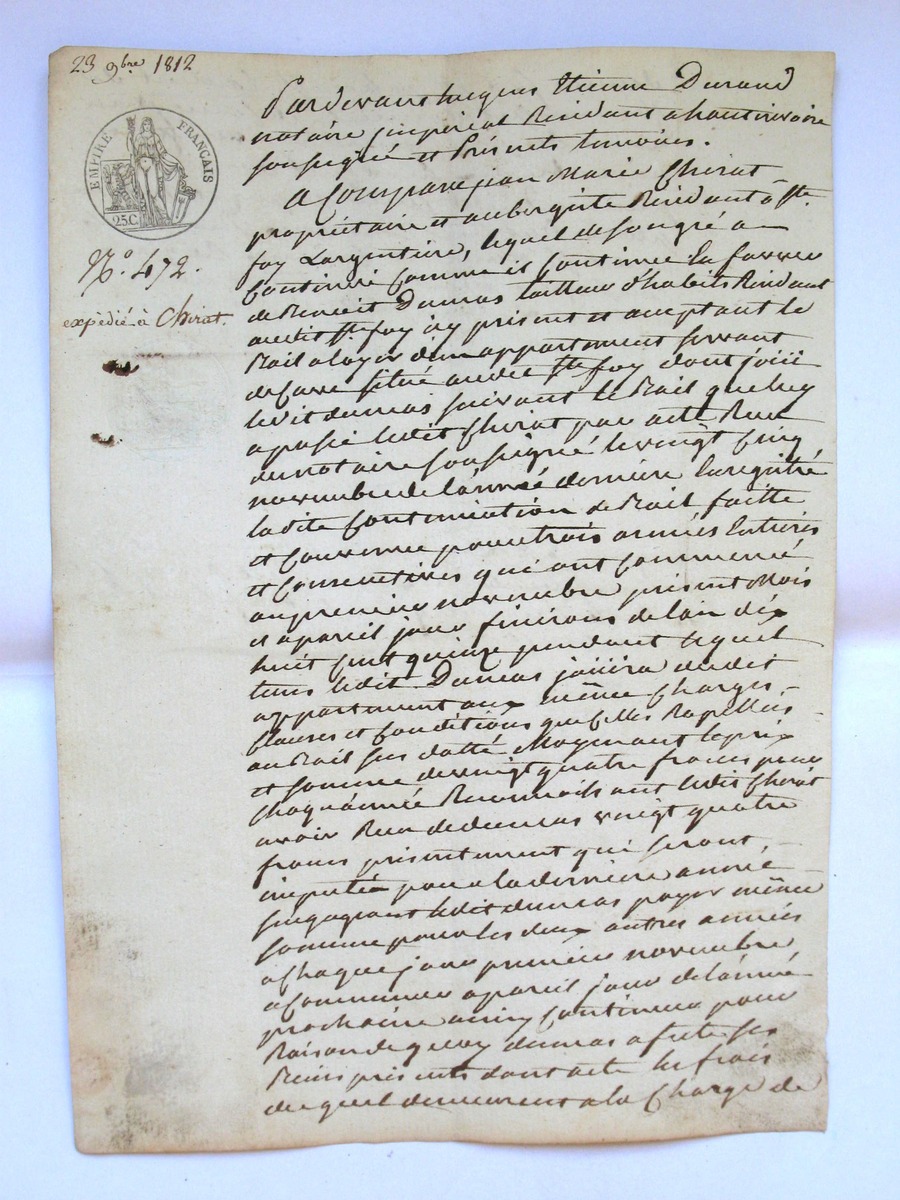 23 9bre 1812
EMPIRE FRANÇAIS
25.C.
No. 472.
expédié à Chirat.
Pardevant Jacques Etienne Durand
notaire impérial Résidant a hauterivoire
soussigné et Présents temoins.
A Comparu jean Marie Chirat
propriétaire et aubergiste Résidant à Ste.
foy Largentiere, lequel de son gré a
Continué Comme il Continue En faveur
de Benoit Dumas tailleur d'habits Résidant
audit Ste foy icy présent et aceptant le
Bail a loyer d'un appartement servant
de Cave situé audit Ste foy dont joüi
ledit dumas suivant le Bail que luy
a passé ledit Chirat par acte Reçu
du notaire soussigné le vingt Cinq
novembre de l'année derniere Enregistré
ladite Continuation de Bail faitte
et Convenue pour trois années Entieres
et Consecutives qui ont Commencé
au premier novembre présent Mois
et a pareil jour finiront de l'an dix
huit Cent quinze pendant lequel
tems ledit Dumas joüira dudit
appartement aux même Charges,
Clauses et Conditions que Celles Rapellées
au Bail sus datté Moyenant le prix
et somme de vingt quatre francs pour
Chaque année Reconnoissant ledit Chirat
avoir Reçu de dumas vingt quatre
francs présentement qui seront,
imputés pour la derniere année
s'engageant ledit dumas payer même
somme pour les deux autres années
a Chaque jour premier novembre
a Commencer a pareil jour de l'année
prochaine ainsy Continuer pour
Raison de quoy dumas a
Biens présents dont acte les frais
duquel demeurent a la Charge de